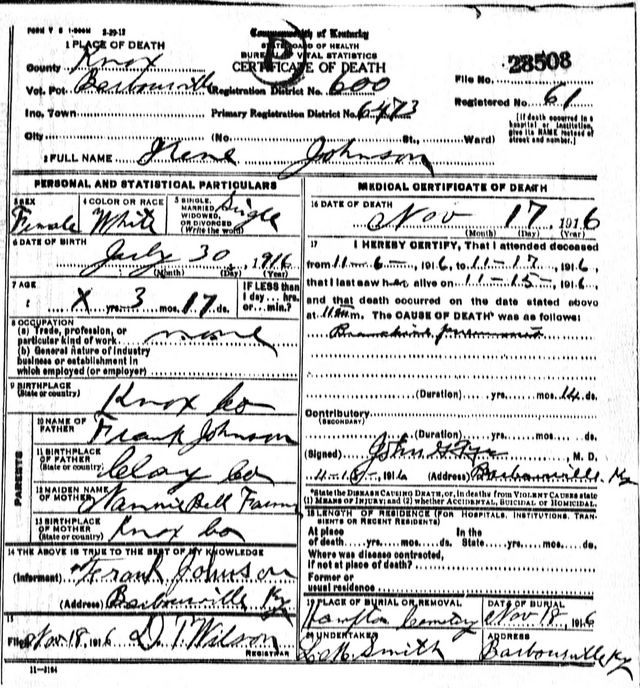 FORM V S 1-500M 2-20-12
Commonwealth of Kentucky
STATE BOARD OF HEALTH
BUREAU OF VITAL STATISTICS
CERTIFICATE OF DEATH
B
1 PLACE OF DEATH
County Knox
Vot. Pct. Barbourville Registration District No. 600
File No. 28508
Inc. Town Primary Registration District No. 6473
Registered No. 61
City (No. St., Ward)
[If death occurred in a hospital or institution, give its NAME instead of street and number.]
2 FULL NAME Irene Johnson
PERSONAL AND STATISTICAL PARTICULARS
3 SEX Female
4 COLOR OR RACE White
5 SINGLE, MARRIED, WIDOWED, OR DIVORCED (Write the word) Single
6 DATE OF BIRTH July 30, 1916
(Month) (Day) (Year)
7 AGE X yrs. 3 mos. 17 ds.
IF LESS than 1 day... hrs. or... min.?
8 OCCUPATION
(a) Trade, profession, or particular kind of work none
(b) General nature of industry business or establishment in which employed (or employer)
9 BIRTHPLACE (State or country) Knox Co
PARENTS
10 NAME OF FATHER Frank Johnson
11 BIRTHPLACE OF FATHER (State or country) Clay Co
12 MAIDEN NAME OF MOTHER Nannie Bell
13 BIRTHPLACE OF MOTHER (State or country) Knox Co
14 THE ABOVE IS TRUE TO THE BEST OF MY KNOWLEDGE
(Informant) Frank Johnson
(Address) Barbourville Ky
15
Filed Nov 18, 1916 D. T. Wilson
REGISTRAR
11-3184
MEDICAL CERTIFICATE OF DEATH
16 DATE OF DEATH
Nov 17, 1916
(Month) (Day) (Year)
17 I HEREBY CERTIFY, That I attended deceased
from 11-6-, 1916, to 11-17, 1916,
that I last saw her alive on 11-15-, 1916,
and that death occurred on the date stated above
at 11 m. The CAUSE OF DEATH* was as follows:
(Duration) yrs. mos. 14 ds.
Contributory
(SECONDARY)
(Duration) yrs. mos. ds.
(Signed) John, M. D.
1916 (Address) Barbourville Ky
*State the DISEASE CAUSING DEATH, or, in deaths from VIOLENT CAUSES state (1) MEANS OF INJURY; and (2) whether ACCIDENTAL, SUICIDAL OR HOMICIDAL.
18 LENGTH OF RESIDENCE (FOR HOSPITALS, INSTITUTIONS, TRANSIENTS OR RECENT RESIDENTS)
At place of death yrs. mos. ds. In the State yrs. mos. ds.
Where was disease contracted, if not at place of death?
Former or usual residence
19 PLACE OF BURIAL OR REMOVAL Hampton Cemetery
DATE OF BURIAL Nov 18, 1916
20 UNDERTAKER Smith
ADDRESS Barbourville Ky